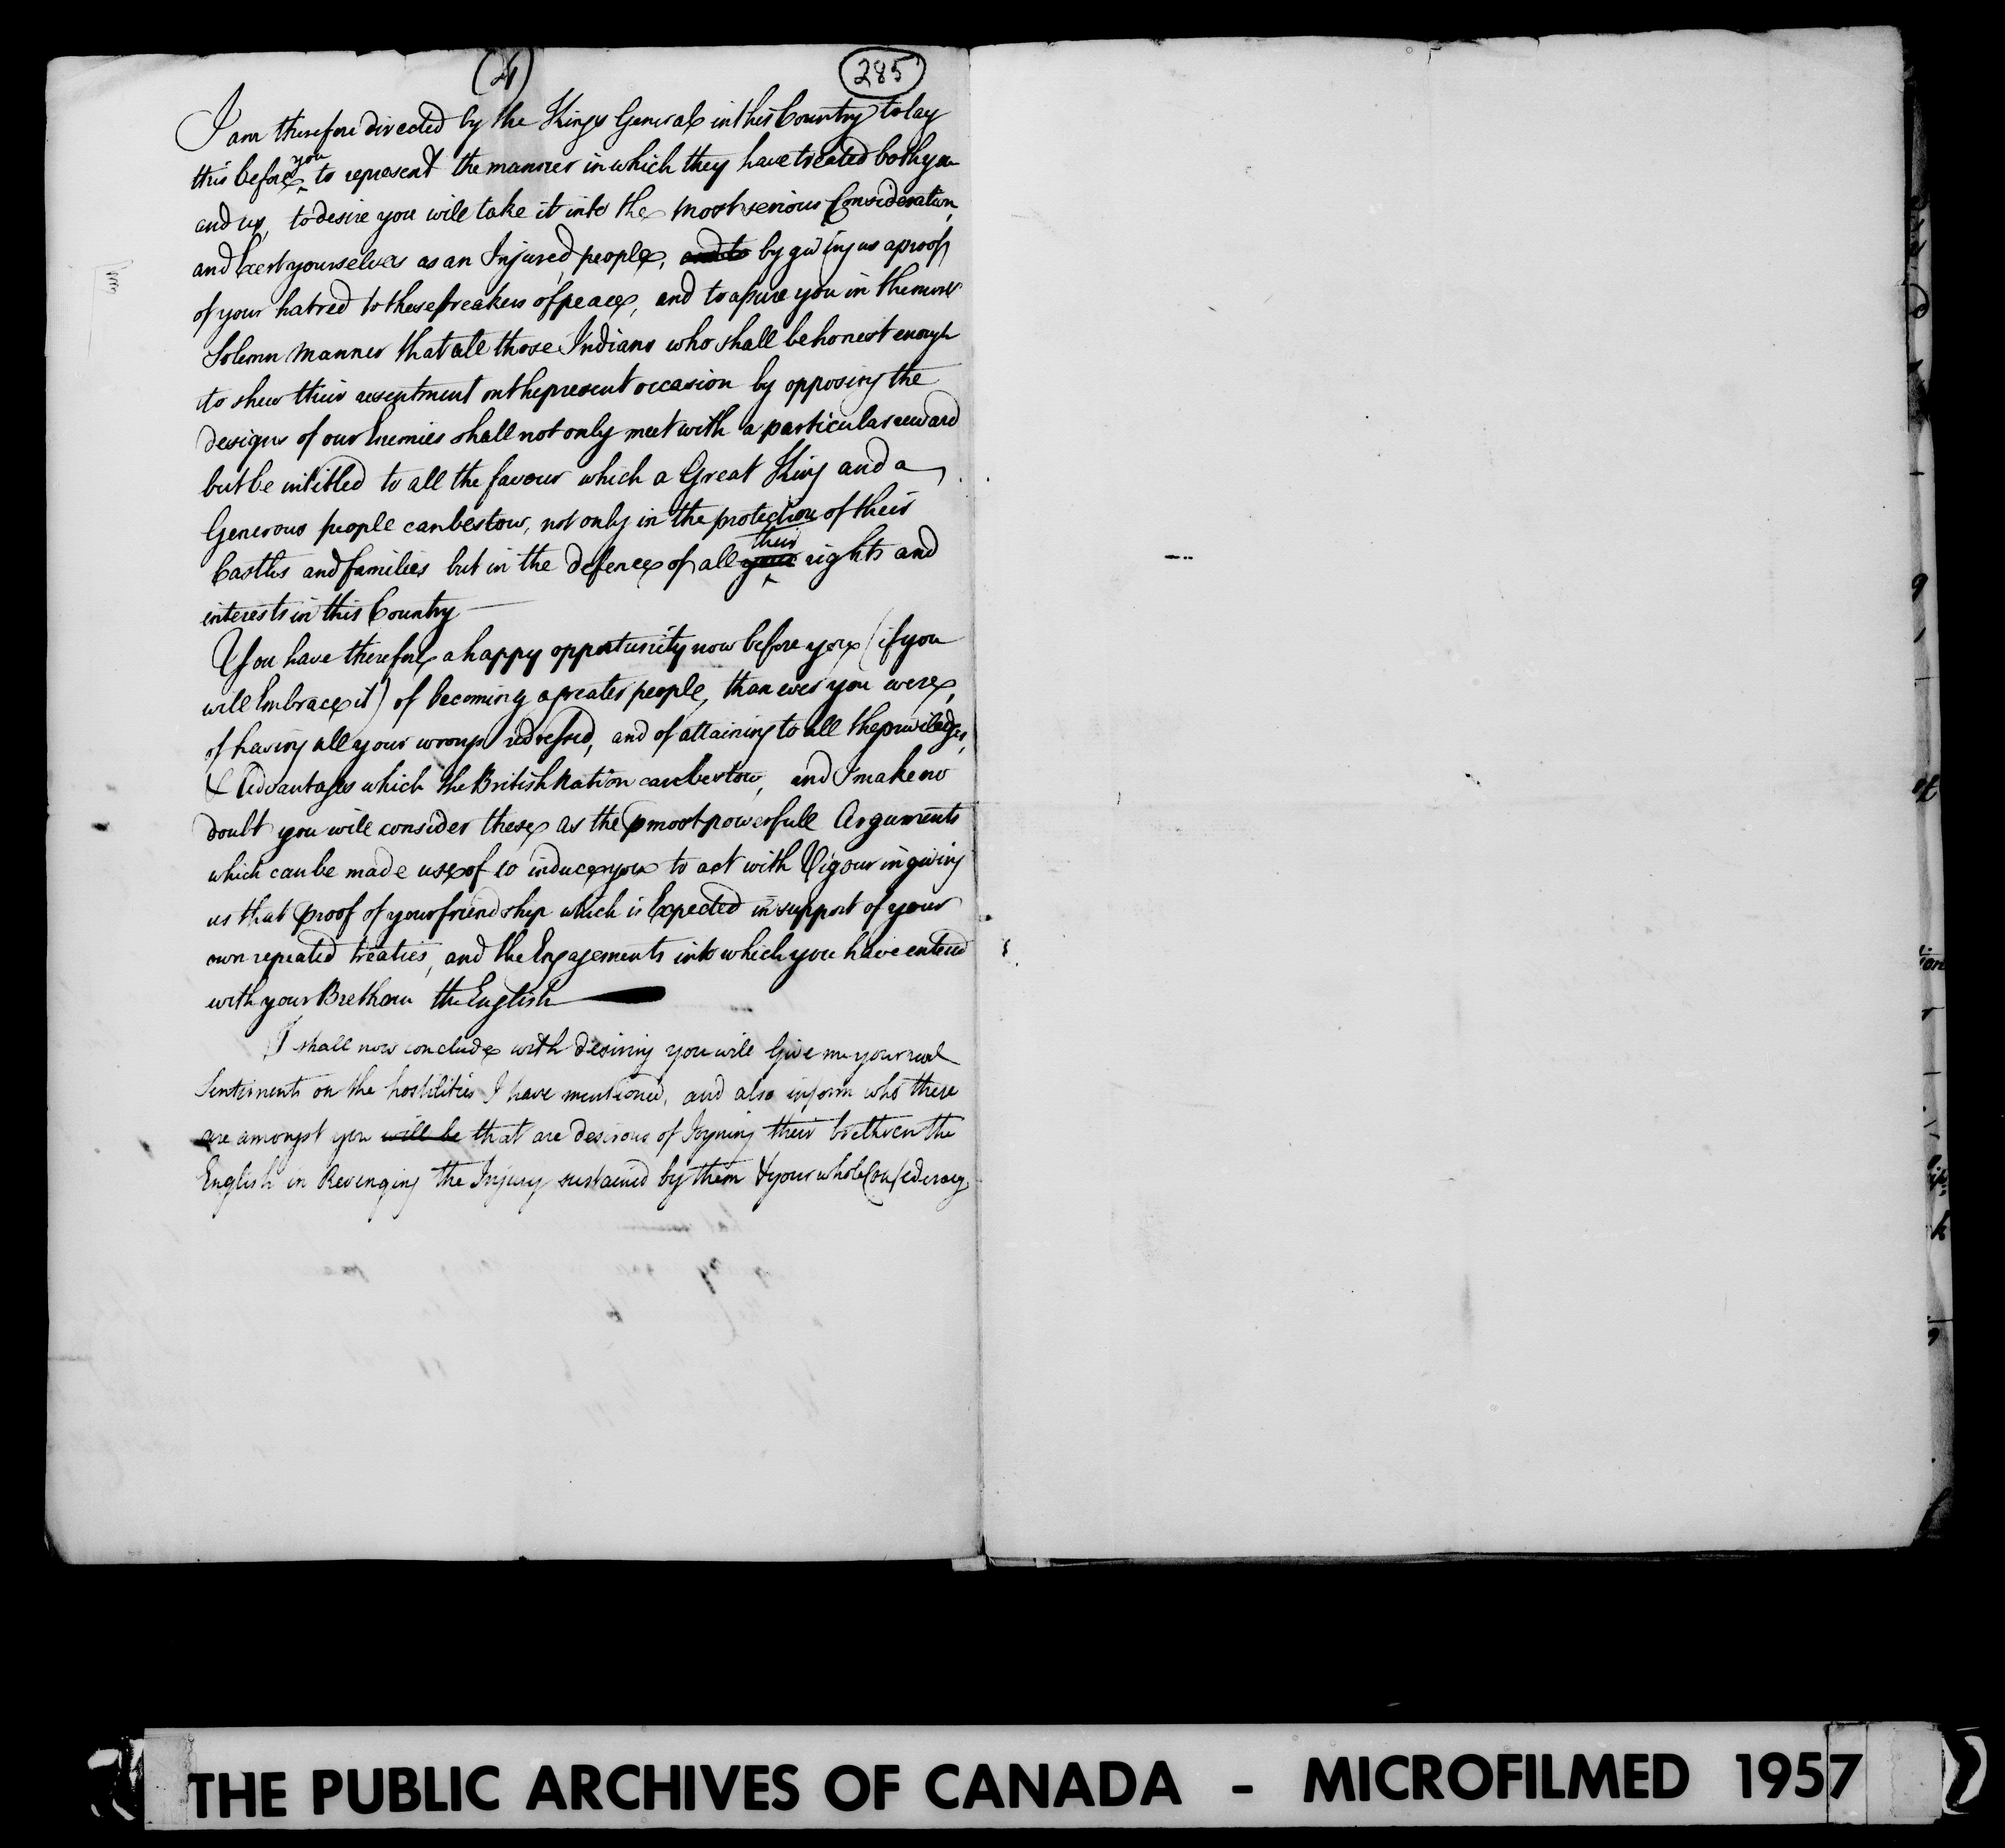 285
I am therefore directed by the Kings General in this Country to lay
this before you to represent the manner in which they have treated both you
and us, to desire you will take it into the most serious Consideration,
and Exert yourselves as an Injured people, and to by giving us a proof
of your hatred to these breakers of peace, and to assure you in the most
Solemn manner that all those Indians who shall be honest enough
to shew their resentment on the present occasion by opposing the
designs of our Enemies shall not only meet with a particular reward
but be intitled to all the favour which a Great King and a
Generous people can bestow, not only in the protection of their
Castles and families but in the defence of all your their rights and
interests in this Country
You have therefore a happy opportunity now before you (if you
will Embrace it) of becoming a greater people, than ever you were,
of having all your wrongs redressed, and of attaining to all the priviledges,
& Advantages which the British Nation can bestow, and I make no
doubt you will consider these as the most powerfull Arguments
which can be made use of to induce you to act with Vigour in giving
us that proof of your friendship which is Expected in support of your
own repeated treaties, and the Engagements into which you have entered
with your Brethren the English
I shall now conclude with desiring you will Give me your real
Sentiments on the hostilities I have mentioned, and also inform who there
are amongst you will be that are desirous of Joyning their brethren the
English in Revenging the Injury sustained by them & your whole Confederacy
THE PUBLIC ARCHIVES OF CANADA - MICROFILMED 1957